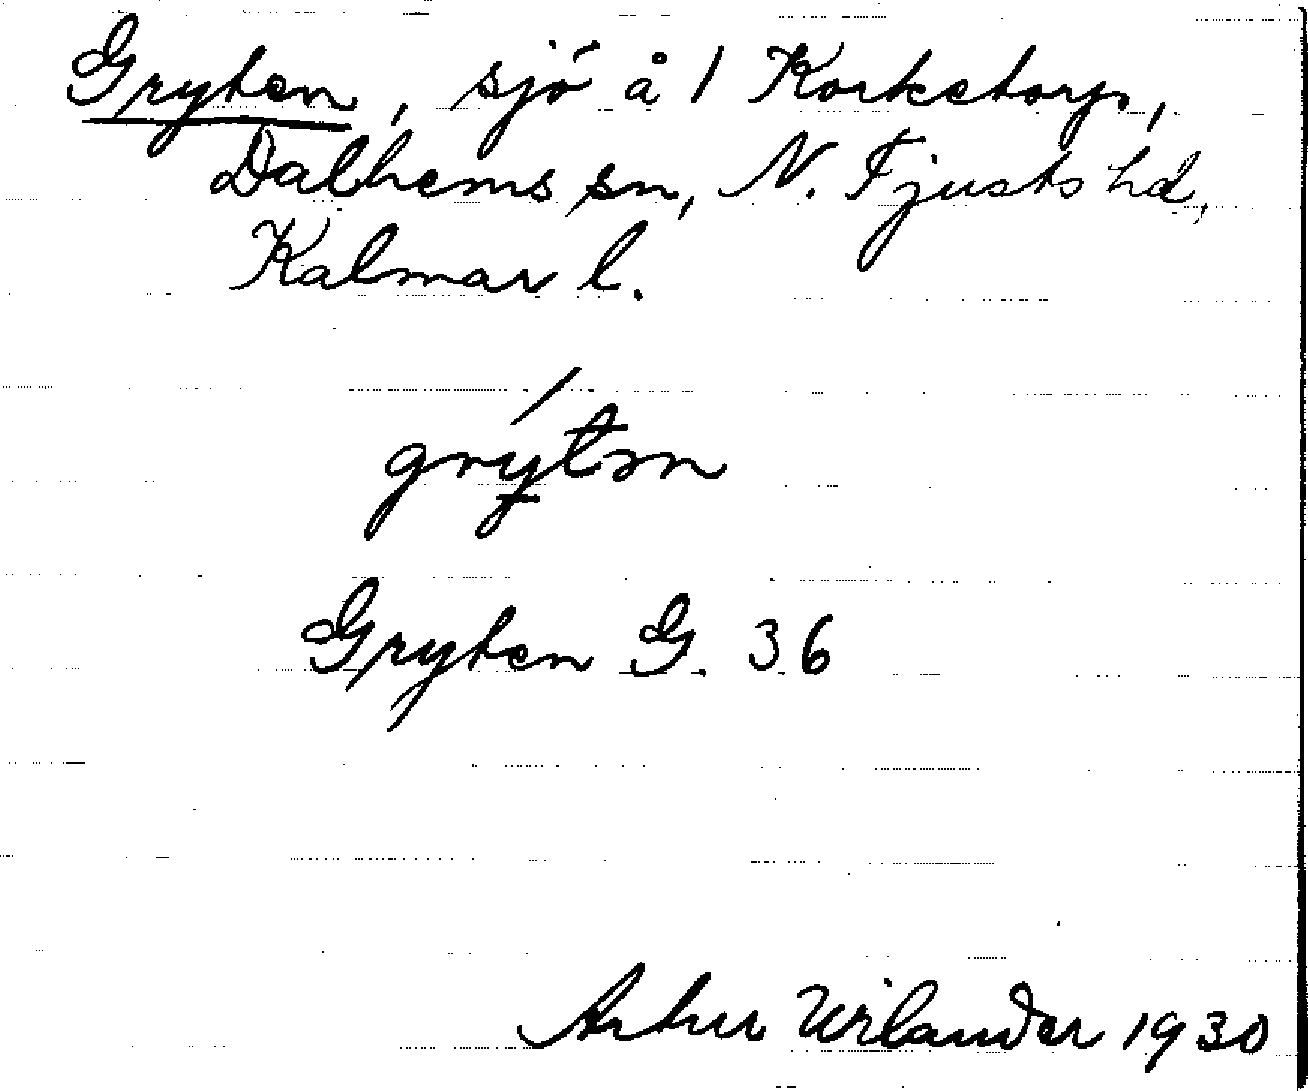 Gryten, sjö å 1 Korketorp,
Dalhems sn, N. Tjusts hd,
Kalmar l.
Gryten G. 36
Artur Wilander 1930